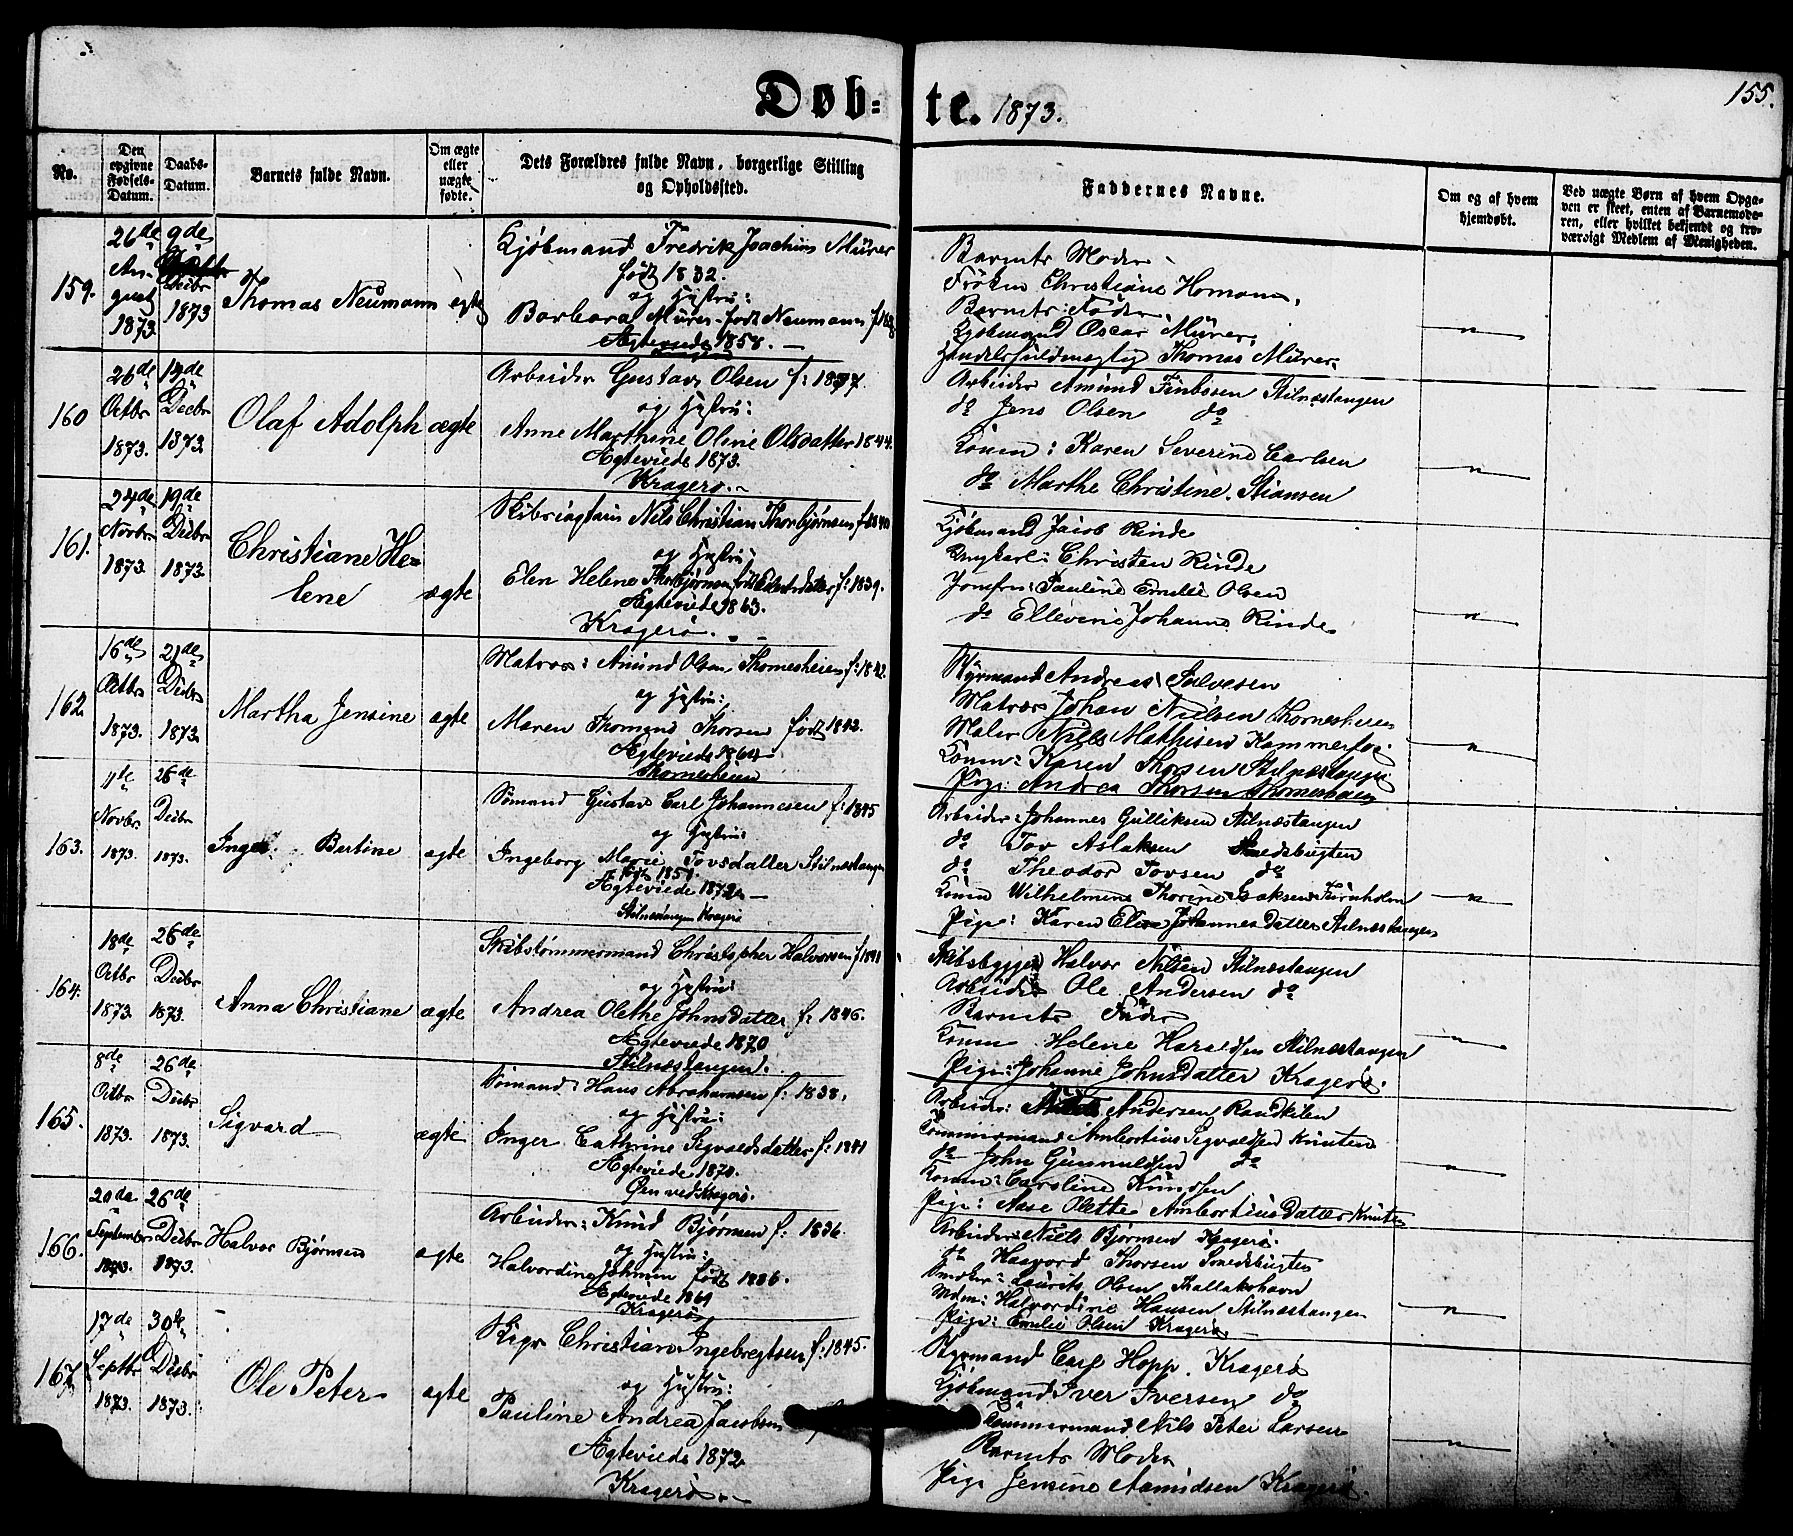 155.
Døb-te. 1873.
No.
Den opgivne Fødsels-Datum.
Daabs-Datum.
Barnets fulde Navn.
Om ægte eller uægte fødte.
Dets Forældres fulde Navn, borgerlige Stilling og Opholdssted.
Faddernes Navne.
Om og af hvem hjemdøbt.
Ved uægte Børn af hvem Opgaven er skeet, enten af Barnemoderen, eller hvilket bekjendt og troværdigt Medlem af Menigheden.
159.
26de August 1873.
9de Decbr 1873
Thomas Neumann
ægte
Kjøbmand Fredrik Joachim Mürer
født 1832.
og Hustru:
Barbara Mürer født Neumann
Ægteviede 1858.
Barnets Moder
Frøken Christiane Homann,
Barnets Fader,
Kjøbmand Oscar Mürer,
Handelsfuldmægtig Thomas Mürer.
160
26de Octbr 1873.
Decbr 1873.
Olaf Adolph
ægte
Arbeider Gustav Olsen
og Hustru:
Anne Marthine Oline Olsdatter 1844.
Ægteviede 1873.
Kragerø.
Arbeider Amund Stilnæstangen
do Jens Olsen do
Konen: Karen Severine Carlsen
do Marthe Christine Stiansen
161.
Novbr 1873.
19de Decbr 1873.
Christiane Helene
ægte
Nils Christian Thorbjørnsen f. 1840
og Hustru
Elen Helene Thorbjørnsen f. 1839.
Ægteviede 1863.
Kragerø.
Kjøbmand Jacob Rinde
Ungkarl: Christen Rinde
Jomfru: Pauline Emilie Olsen
do Johanne Rinde
162
16de Octbr 1873.
21de Decbr 1873.
Martha Jensine
ægte
Matros: Amund Olsen Thomesheien f. 1842.
og Hustru:
Maren Thorsen født 1843.
Ægteviede 1864
Thomesheien
Styrmand Andreas Salvesen
Matros Johan Nielsen Thomesheien
Maler Niels Mathisen Kammerfos.
Konen: Karen Thorsen Stilnæstangen
Pige: Andrea Thorsen Thomesheien
163.
11te Novbr 1873.
26de Decbr 1873.
Inger Bertine
ægte
Sømand Gustav Carl Johannesen f. 1845
og Hustru
Ingeborg Marie Tovsdatter Stilnæstangen
født 1851.
Ægteviede 1872.
Stilnæstangen Kragerø
Arbeider: Johannes Gulliksen Stilnæstangen
do Tov Aslaksen Smedsbugten
do Theodor Tovsen do
Konen Wilhelmine Thorine Isaksen
Pige: Karen Elise Johannesdatter Stilnæstangen
164.
18de Octbr 1873.
26de Decbr 1873.
Anna Christiane
ægte
Skibstømmermand Christopher Halvorsen
og Hustru:
Andrea Olethe Johnsdatter f. 1846.
Ægteviede 1870
Stilnæstangen.
Skibsbygger Halvor Nilsen Stilnæstangen
Arbeider Ole Andersen do
Barnets Fader
Konen Helene Haraldsen Stilnæstangen
Pige: Johanne Johnsdatter Kragerø.
165.
8de Octbr 1873.
26de Decbr 1873.
Sigvard
ægte
Sømand: Hans Abrahamsen f. 1838.
og Hustru:
Inger Cathrine Sigvaldsdatter f. 1841
Ægteviede 1870.
Øen ved Kragerø.
Arbeider: Andersen
Tømmermand Ambortius Sigvaldsen
do John Gunnuldsen do
Konen: Caroline Knudsen
Pige: Aase Olette Ambortiusdatter
166.
20de September 1873.
26de Decbr 1873.
Halvor Bjørnsen
ægte
Arbeider: Knud Bjørnsen f. 1836.
og Hustru:
Halvordine Johnsen født 1836.
Ægteviede 1861
Kragerø
Arbeider: Niels Bjørnsen Kragerø.
do Thorsen Smedsbugten
Laurits Olsen
Mdm: Halvordine Hansen Stilnæstangen
Pige: Emilie Olsen Kragerø.
167.
17de Septbr 1873.
30te Decbr 1873.
Ole Peter
ægte
Skipr Christian Ingebregtsen f. 1845.
og Hustru:
Pauline Andrea Jacobsen
Ægteviede 1872
Kragerø.
Styrmand Carl Hopp. Kragerø
Kjøbmand Iver Iversen do
Tømmermand Nils Peter Larsen
Barnets Moder
Pige Jensine Aamundsen Kragerø.